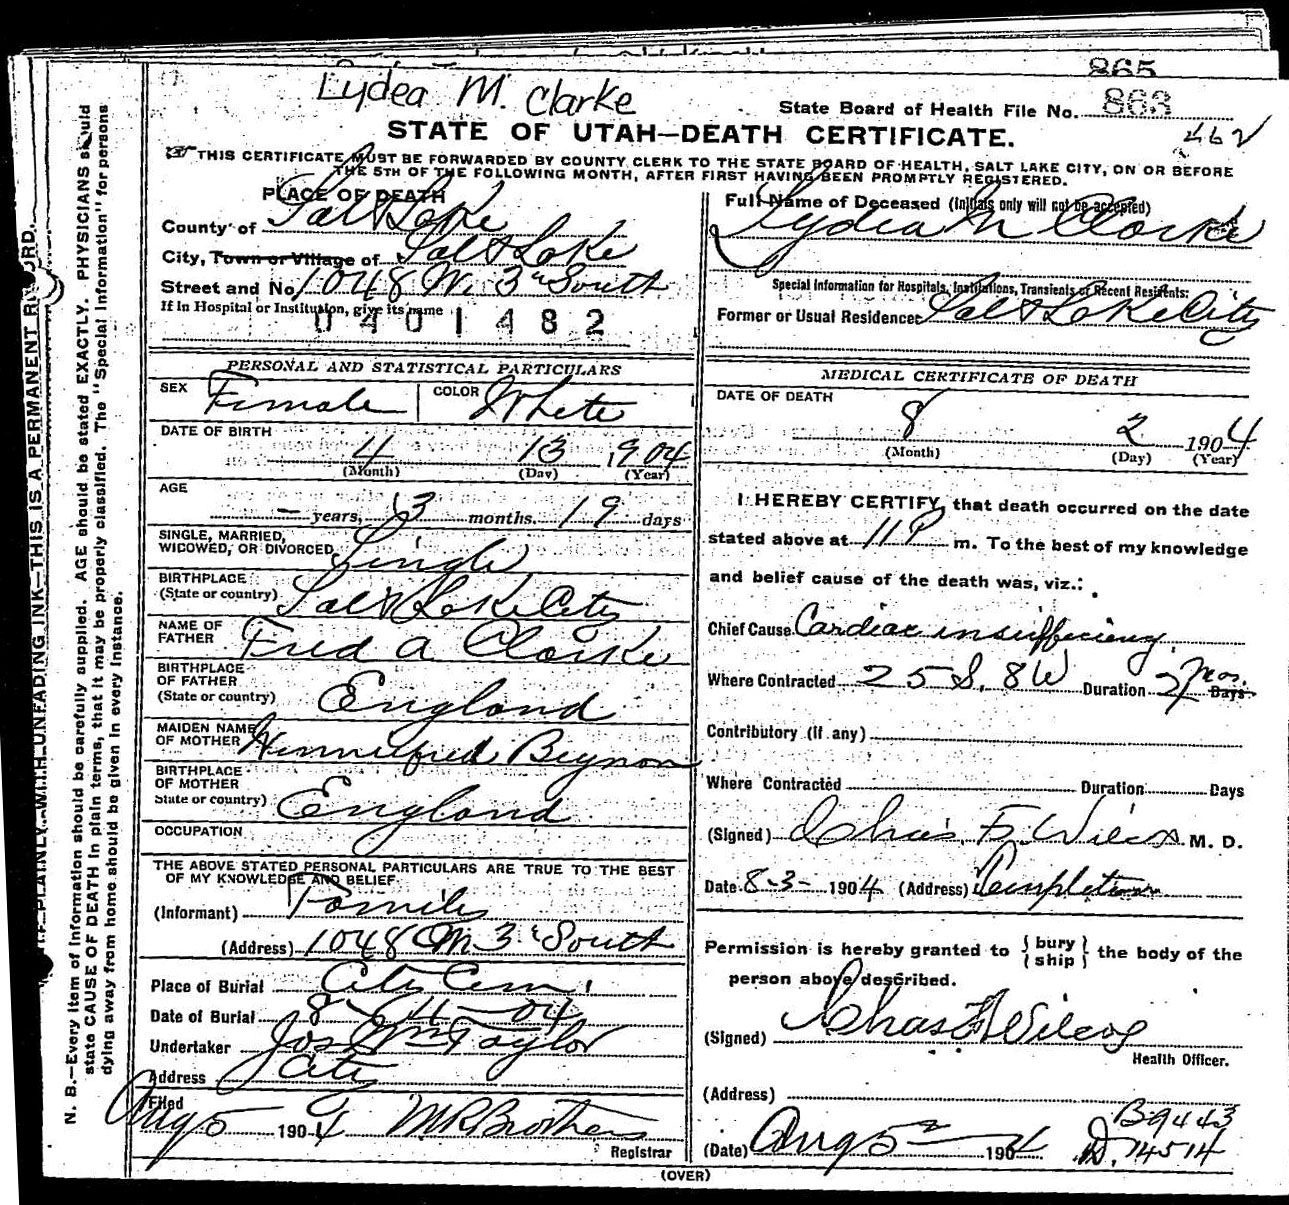 865
Lydea M. Clarke
State Board of Health File No. 863
462
STATE OF UTAH—DEATH CERTIFICATE.
☞ THIS CERTIFICATE MUST BE FORWARDED BY COUNTY CLERK TO THE STATE BOARD OF HEALTH, SALT LAKE CITY, ON OR BEFORE
THE 5TH OF THE FOLLOWING MONTH, AFTER FIRST HAVING BEEN PROMPTLY REGISTERED.
PLACE OF DEATH
County of Salt Lake
City, Town or Village of Salt Lake
Street and No. 1048 W. 3rd South
If in Hospital or Institution, give its name
0401482
PERSONAL AND STATISTICAL PARTICULARS
SEX Female COLOR White
DATE OF BIRTH
4 13 1904
(Month) (Day) (Year)
AGE
— years, 3 months, 19 days
SINGLE, MARRIED,
WIDOWED, OR DIVORCED Single
BIRTHPLACE
(State or country) Salt Lake City
NAME OF
FATHER Fred A Clarke
BIRTHPLACE
OF FATHER
(State or country) England
MAIDEN NAME
OF MOTHER Winnefred Beynon
BIRTHPLACE
OF MOTHER
State or country) England
OCCUPATION
THE ABOVE STATED PERSONAL PARTICULARS ARE TRUE TO THE BEST
OF MY KNOWLEDGE AND BELIEF
(Informant) Family
(Address) 1048 W 3rd South
Place of Burial City Cem.
Date of Burial 8-4-04
Undertaker Jos Wm Taylor
Address City
Filed
Aug 5 1904 M R Brothers
Registrar
Full Name of Deceased (Initials only will not be accepted)
Lydea M Clarke
Special Information for Hospitals, Institutions, Transients or Recent Residents:
Former or Usual Residence Salt Lake City
MEDICAL CERTIFICATE OF DEATH
DATE OF DEATH
8 2 1904
(Month) (Day) (Year)
I HEREBY CERTIFY, that death occurred on the date
stated above at 11 P m. To the best of my knowledge
and belief cause of the death was, viz.:
Chief Cause Cardiac insufficiency
Where Contracted 25 S. 8W Duration 2 mos. Days
Contributory (if any)
Where Contracted Duration Days
(Signed) Chas. F. Wilcox M. D.
Date 8-3- 1904 (Address) Templeton
Permission is hereby granted to { bury ship } the body of the
person above described.
(Signed) Chas F Wilcox
Health Officer.
(Address)
B9443
(Date) Aug 5 1904 D. 14514
(OVER)
N. B.—Every item of information should be carefully supplied. AGE should be stated EXACTLY. PHYSICIANS should
state CAUSE OF DEATH in plain terms, that it may be properly classified. The "Special Information" for persons
dying away from home should be given in every instance.
PLAINLY, WITH UNFADING INK—THIS IS A PERMANENT RECORD.